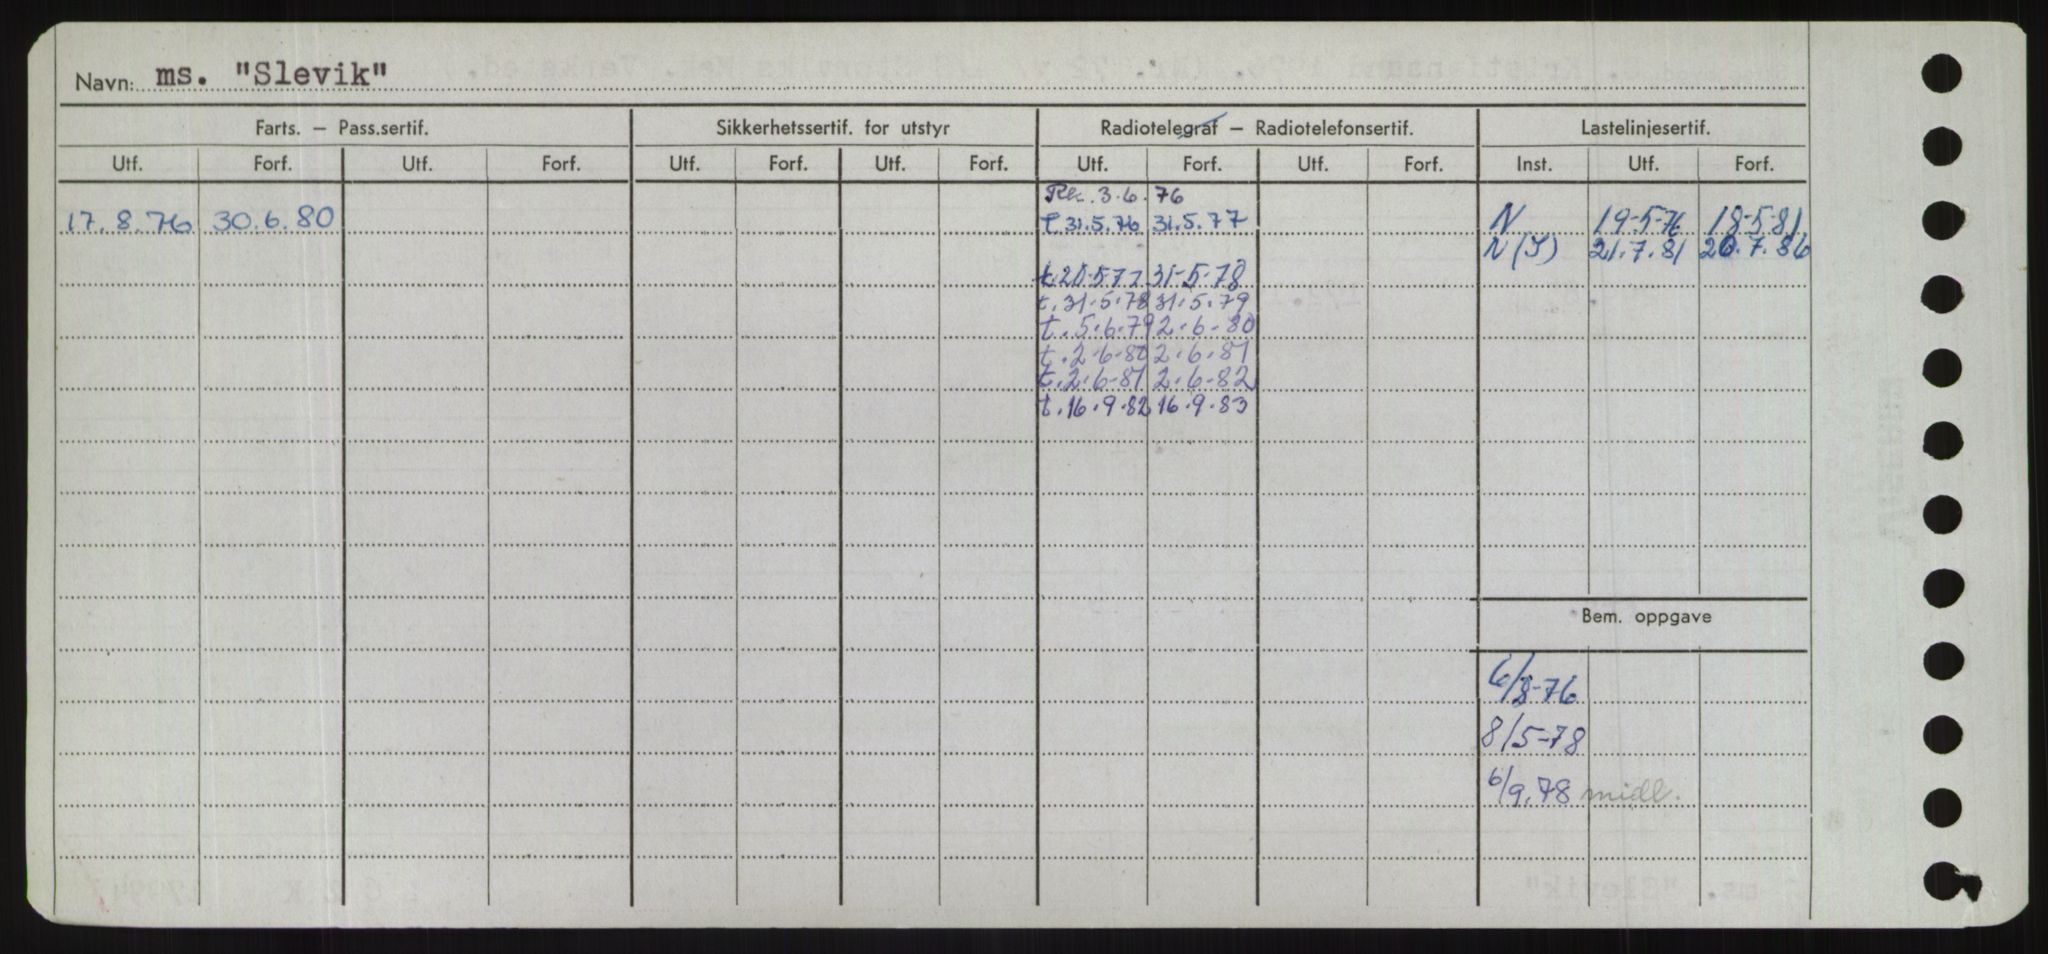 Navn: ms. "Slevik"
Farts. — Pass.sertif. Sikkerhetssertif. for utstyr Radiotelegraf — Radiotelefonsertif. Lastelinjesertif.
Utf. Forf. Utf. Forf. Utf. Forf. Utf. Forf. Utf. Forf. Utf. Forf. Inst. Utf. Forf.
3.6.76
17.8.76 30.6.80 t 31.5.76 31.5.77 N 19-5-76 18-5-81
N(I) 21.7.81 20.7.86
31-5-78
t.31.5.78 31.5.79
t.5.6.79 2.6.80
t.2.6.80 2.6.81
t.2.6.81 2.6.82
t.16.9.82 16.9.83
Bem. oppgave
6/8-76
8/5-78
6/9.78 midl.